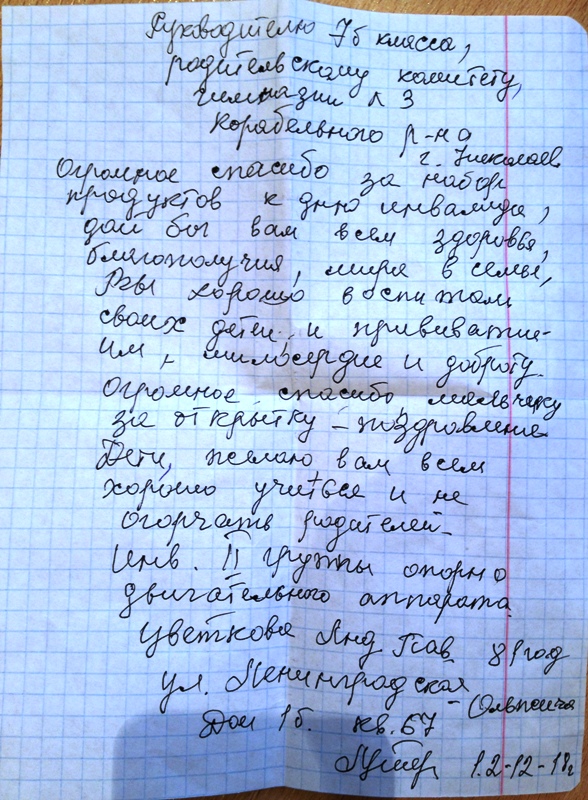 Руководителю 7б класса,
родительскому комитету,
гимназии № 3
Корабельного р-на
г. Николаев
Огромное спасибо за набор
продуктов к дню инвалида,
дай бог вам всем здоровья,
благополучия, мира в семье,
Вы хорошо воспитали
своих детей, и прививаете
им, милосердие и доброту.
Огромное спасибо мальчику
за открытку - поздравление
Дети, желаю вам всем
хорошо учиться и не
огорчать родителей -
Инв. II группы опорно
двигательного аппарата
Цветкова Пав. 81 год
ул. Ленинградская
Дом 1б. кв. 67
1.2-12-18г